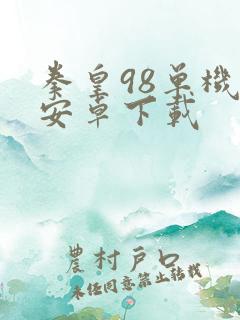 拳皇98单機
安卓下載
農村戶口
未经同意禁止转载